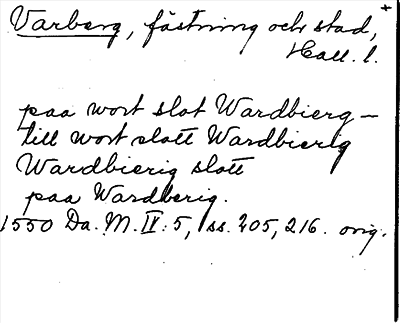 Varberg, fästning och stad,
Hall. l.
paa wort slot Wardbierg –
till wort slott Wardbierig
Wardbierig slott
paa Wardberig.
1550 Da. M. IV: 5, ss. 205, 216. orig.